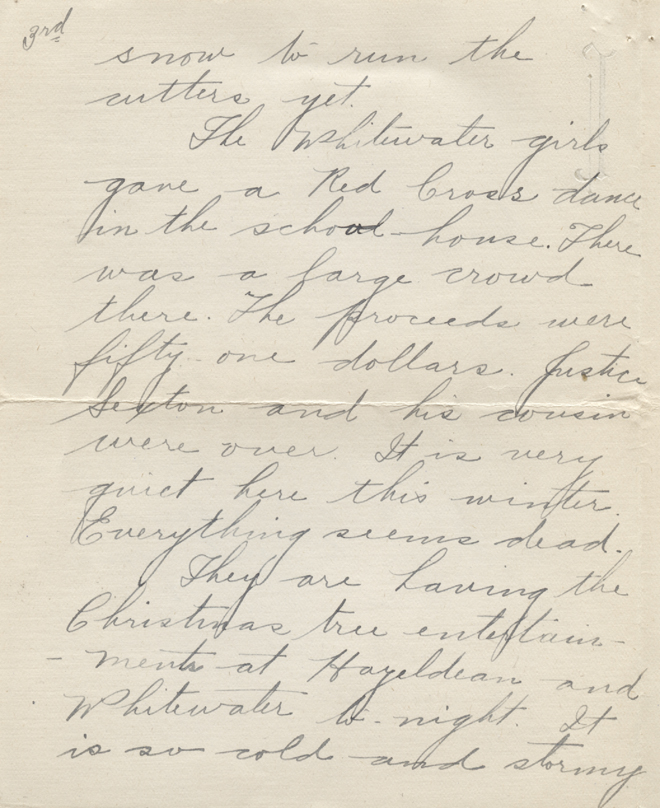 3rd
snow to run the
cutters yet.
The Whitewater girls
gave a Red Cross dance
in the school-house. There
was a large crowd
there. The proceeds were
fifty-one dollars. Justice
Sexton and his cousin
were over. It is very
quiet here this winter.
Everything seems dead.
They are having the
Christmas tree entertain-
-ments at Hazeldean and
Whitewater to-night. It
is so cold and stormy